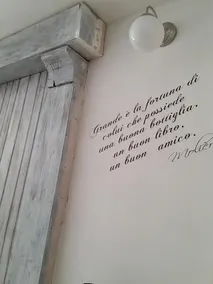 Grande è la fortuna di
colui che possiede
una buona bottiglia,
un buon libro,
un buon amico.
Molier